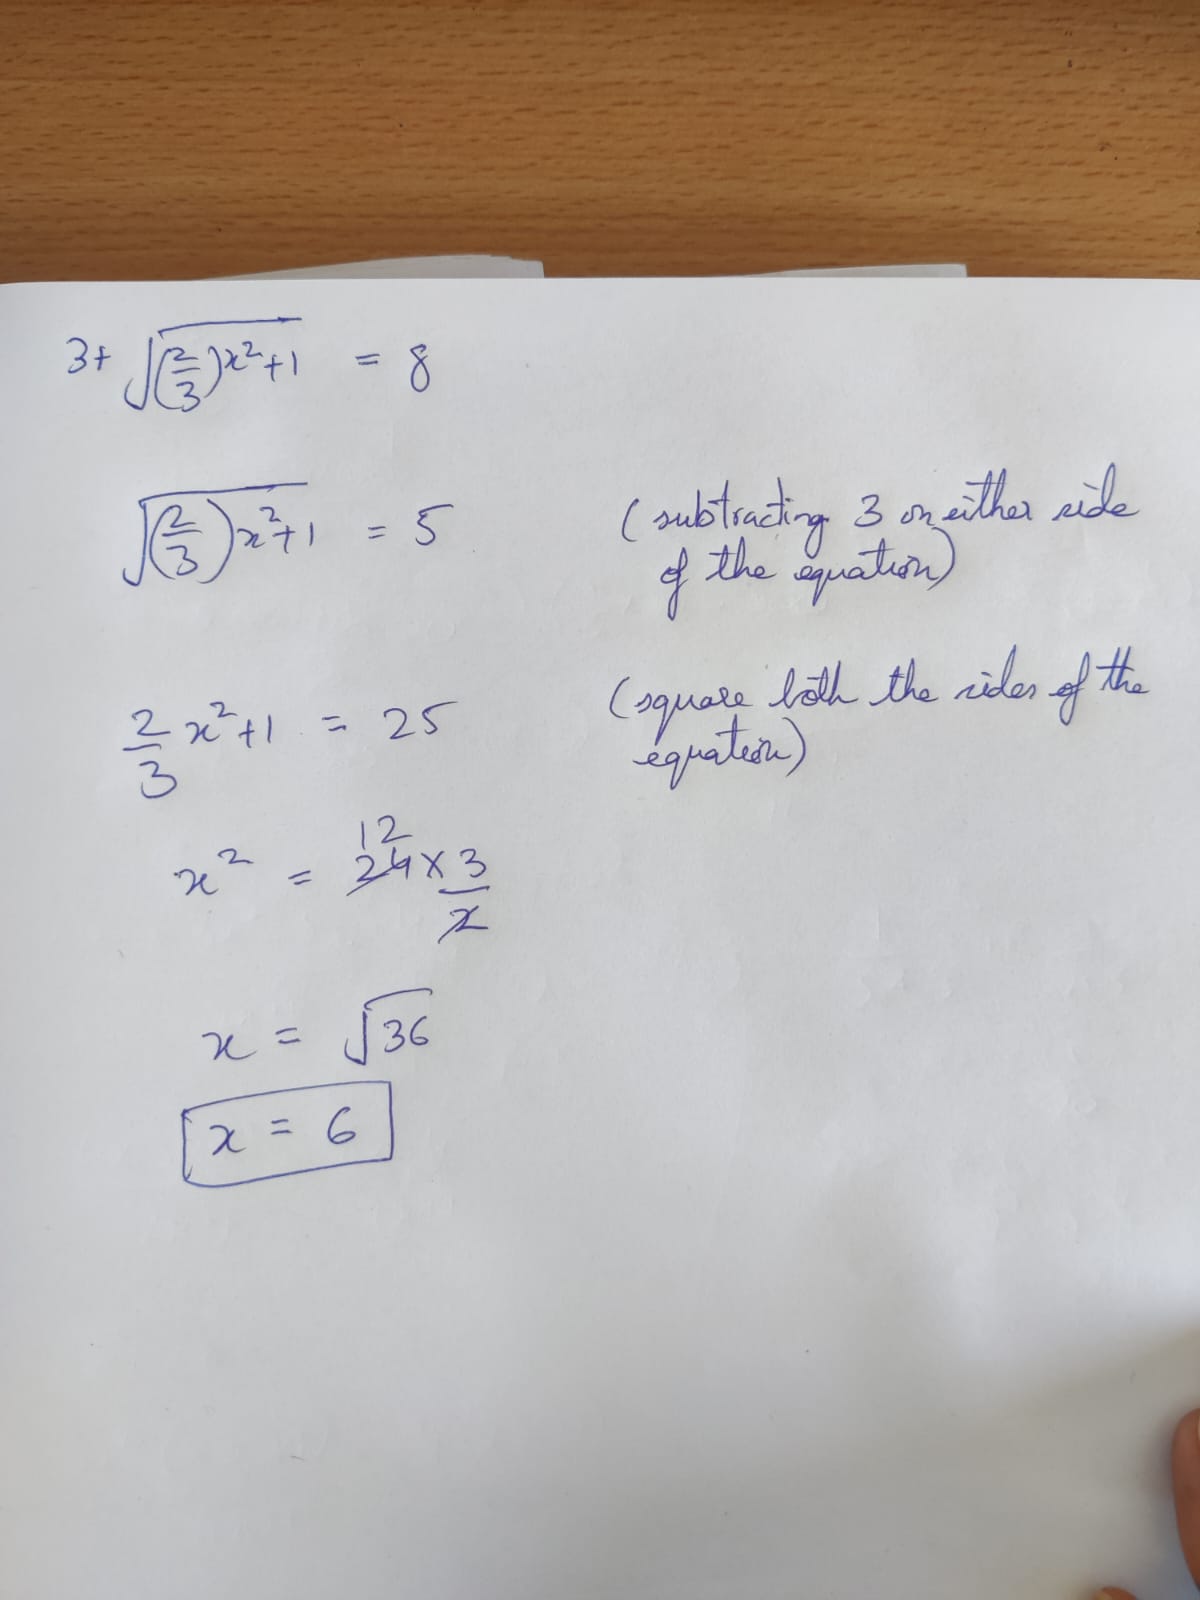 3+ √((2/3)x²+1) = 8
√((2/3)x²+1) = 5 (subtracting 3 on either side
of the equation)
2/3 x²+1 = 25 (square both the sides of the
equation)
12
x² = 24 × 3/2
x = √36
x = 6